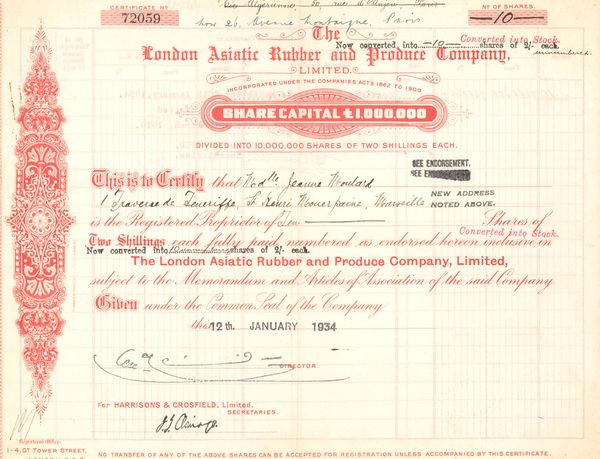 CERTIFICATE No
72059
No OF SHARES.
-10-
Cie Algérienne, 50, rue d'Anjou, Paris
now 26, Avenue Montaigne, Paris
The
Now converted into -10- shares of 2/- each.
Converted into Stock.
unnumbered.
London Asiatic Rubber and Produce Company,
LIMITED.
INCORPORATED UNDER THE COMPANIES ACTS 1862 TO 1900
SHARE CAPITAL £1,000,000
DIVIDED INTO 10,000,000 SHARES OF TWO SHILLINGS EACH.
SEE ENDORSEMENT.
SEE ENDORSEMENT.
This is to Certify that Modlle Jeanne Moulard
1 Traverse de Ténériffe, St Henri, Marseille
NEW ADDRESS
NOTED ABOVE.
is the Registered Proprietor of Ten Shares of
Converted into Stock.
Two Shillings each fully paid, numbered as endorsed hereon inclusive in
Now converted into shares of 2/- each.
The London Asiatic Rubber and Produce Company, Limited,
subject to the Memorandum and Articles of Association of the said Company
Given under the Common Seal of the Company
this 12th. JANUARY 1934
DIRECTOR.
For HARRISONS & CROSFIELD, Limited.
SECRETARIES.
Registered Office:
1-4, GT TOWER STREET,
NO TRANSFER OF ANY OF THE ABOVE SHARES CAN BE ACCEPTED FOR REGISTRATION UNLESS ACCOMPANIED BY THIS CERTIFICATE.